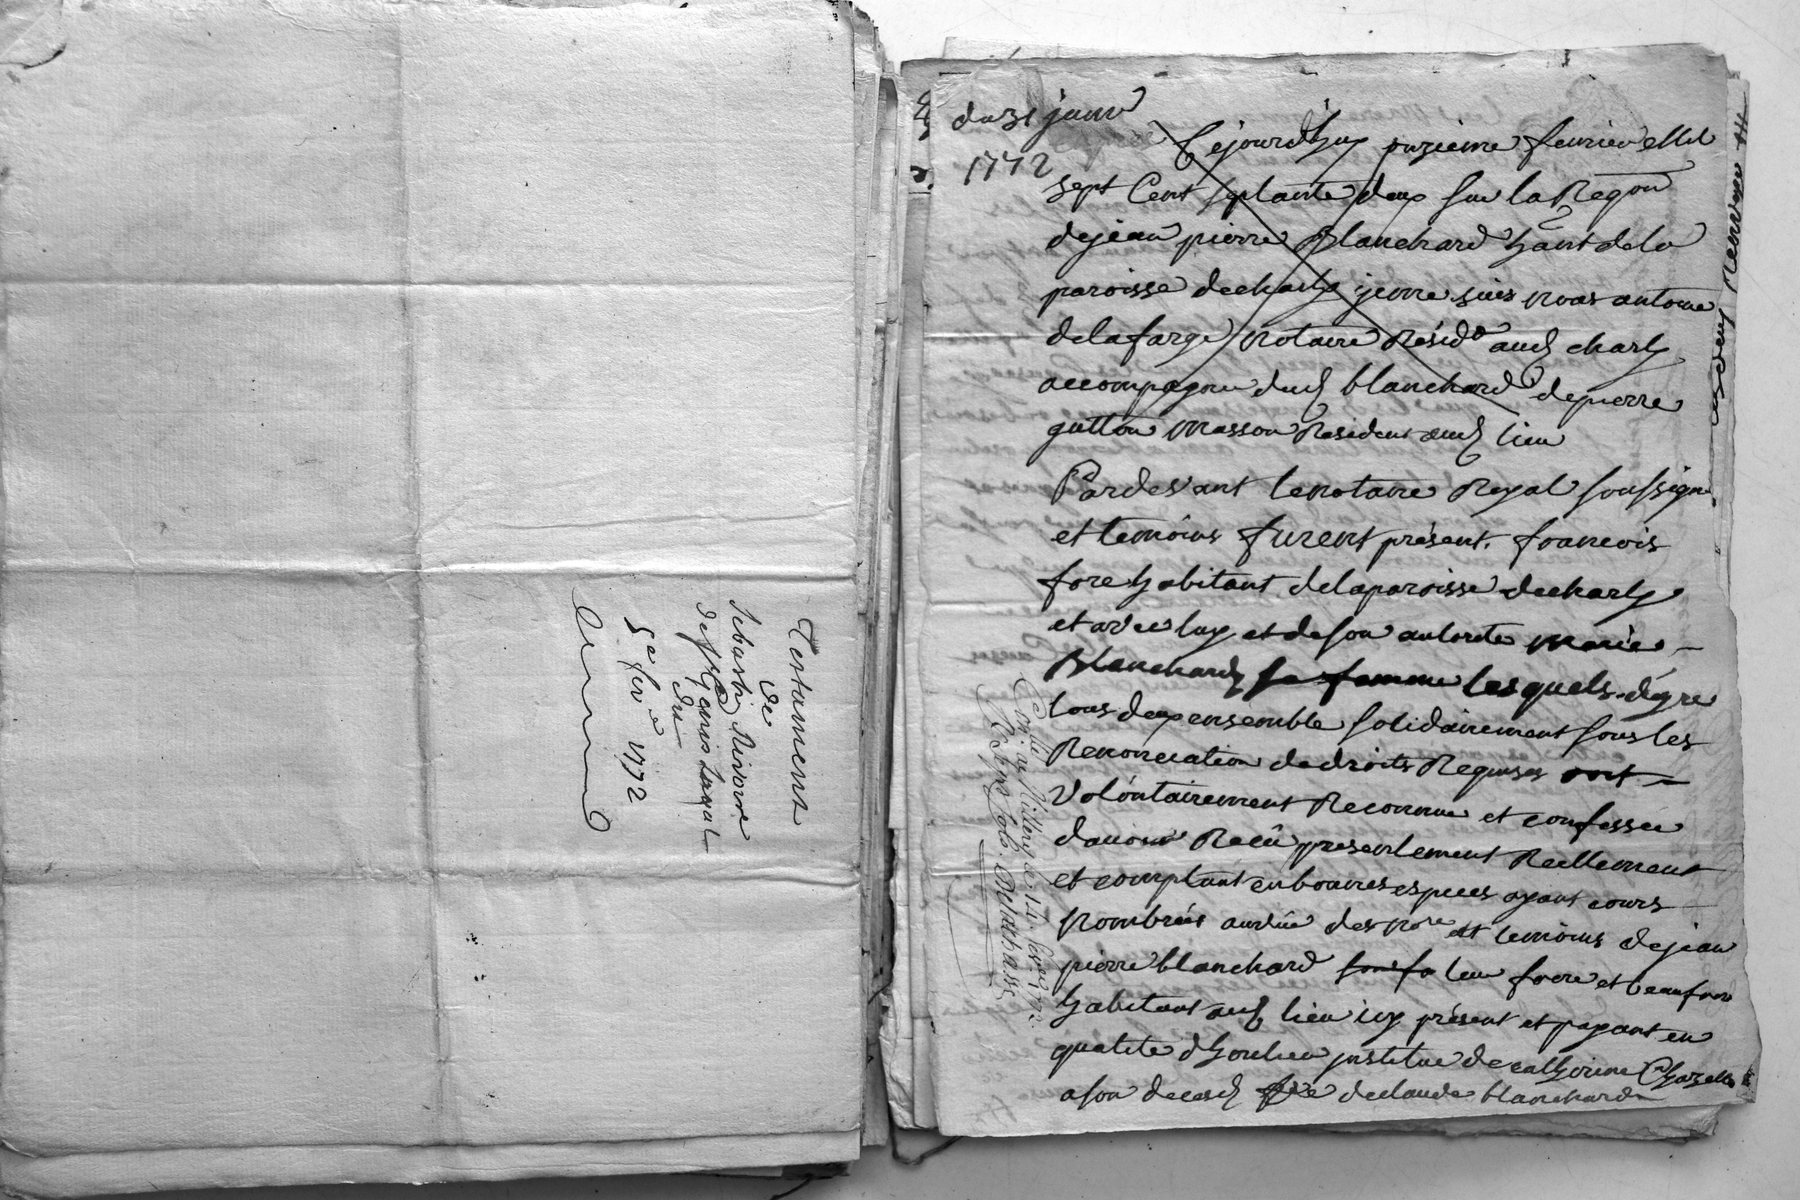 Testament
de
Sebastn Rivoire
du
5e fevr 1772
du 31 janv
1772
Cejourdhuy onzieme feuvrier Mil
sept Cent septante deux sur la Reqon
de jean pierre Blanchard hant de la
paroisse de charly je me suis nous antoine
delafarge notaire Résidt aud charly
accompagné dud blanchard de pierre
gutton masson Resident aud lieu
Pardevant le notaire Royal soussigné
et temoins furent présent. francois
fore habitant de la paroisse de charly
et avec luy et de son autorité marie
Blanchard sa famme lesquels de gre
tous deux ensemble solidairement sous les
Renonciation de droits Requises ont
Volontairement Reconnu et confessée
d'avoir Recû presentement Reellement
et comptant en bonnes especes ayant cours
Nombrées audue des nore et temoins de jean
pierre blanchard leur frere et beaufrere
habitant aud lieu icy présent et payant en
qualite d'heritier institue de catherine Chazelle
a son deces de claude blanchard